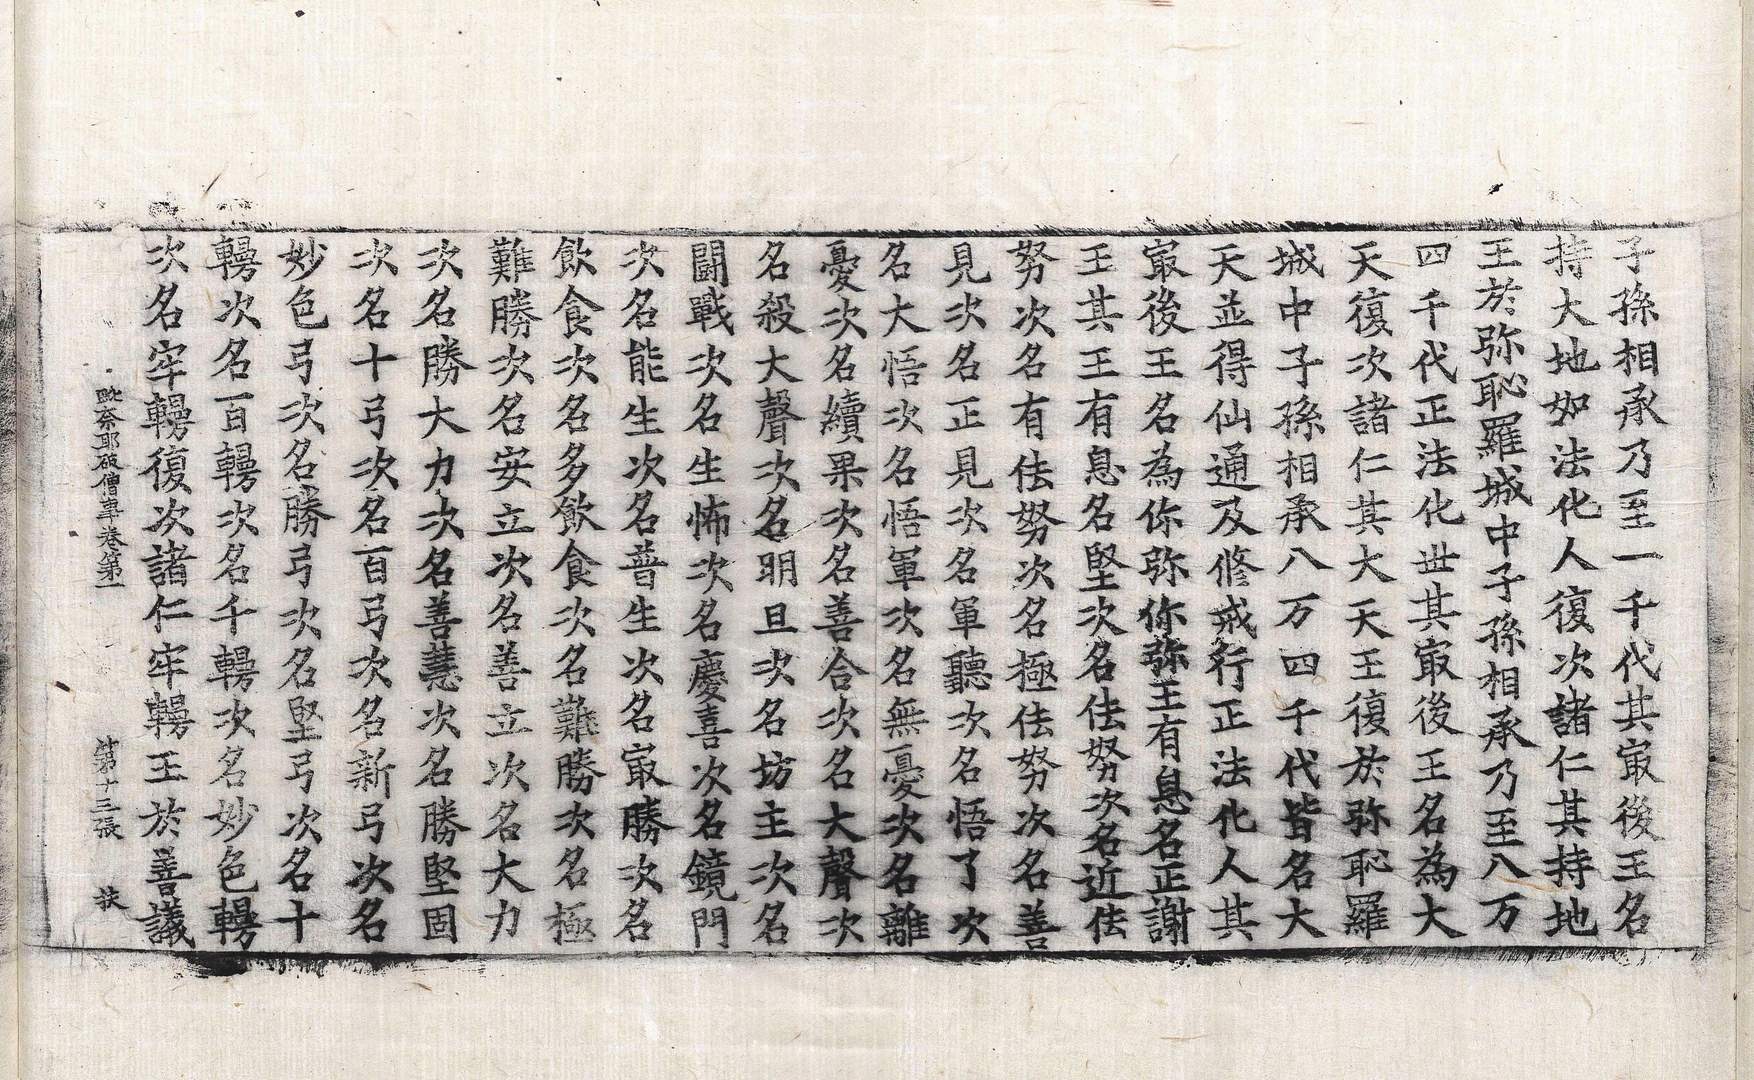 子孫相承乃至一千代其㝡後王名
持大地如法化人復次諸仁其持地
王於弥恥羅城中子孫相承乃至八万
四千代正法化世其㝡後王名為大
天復次諸仁其大天王復於弥恥羅
城中子孫相承八万四千代皆名大
天並得仙通及修戒行正法化人其
㝡後王名為你弥你弥王有息名正謝
王其王有息名堅次名佉努次名近佉
努次名有佉努次名極佉努次名善
見次名正見次名軍聽次名悟了次
名大悟次名悟軍次名無憂次名離
憂次名續果次名善合次名大聲次
名殺大聲次名明旦次名坊主次名
闘戰次名生怖次名慶喜次名鏡門
次名能生次名普生次名㝡勝次名
飲食次名多飲食次名難勝次名極
難勝次名安立次名善立次名大力
次名勝大力次名善慧次名勝堅固
次名十弓次名百弓次名新弓次名
妙色弓次名勝弓次名堅弓次名十
轒次名百轒次名千轒次名妙色轒
次名牢轒復次諸仁牢轒王於善議
毗奈耶破僧事卷第一 第十三張 扶